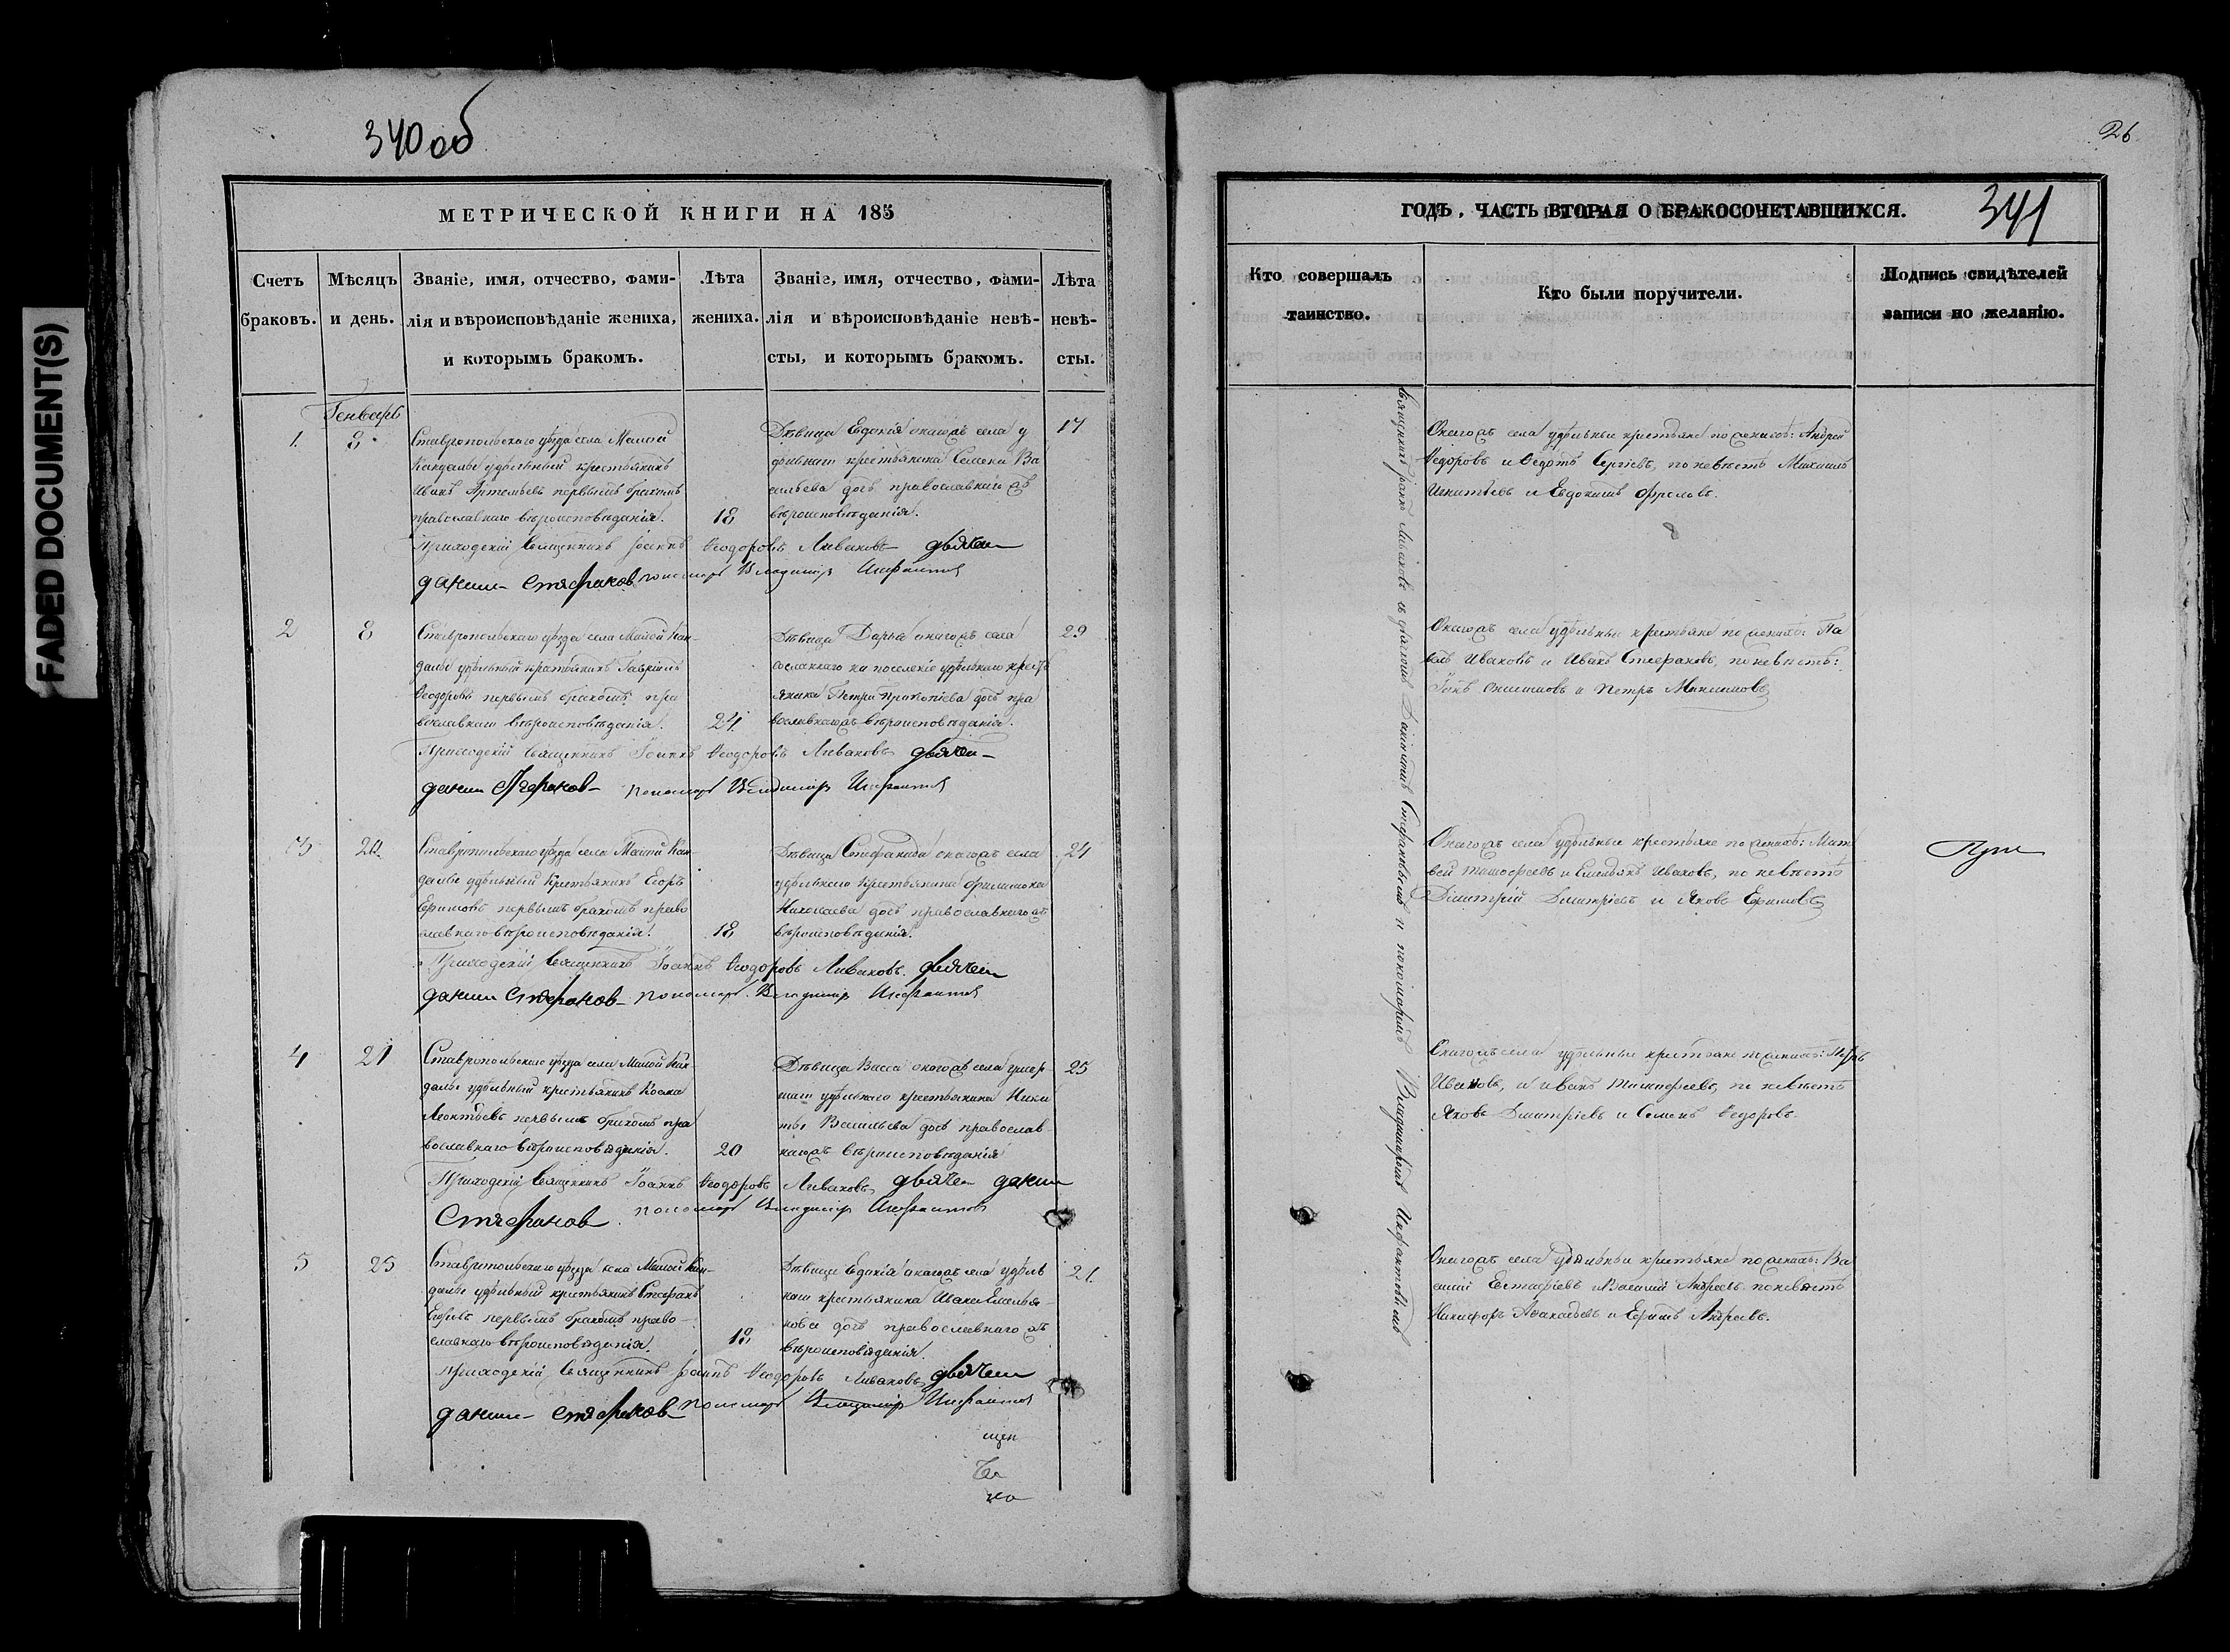 FADED DOCUMENT(S)
340 об
МЕТРИЧЕСКОЙ КНИГИ НА 185
Счетъ браковъ.
Мѣсяцъ и день.
Званіе, имя, отчество, фами-
лія и вѣроисповѣданіе жениха,
и которымъ бракомъ.
Лѣта
жениха.
Званіе, имя, отчество, фами-
лія и вѣроисповѣданіе невѣ-
сты, и которымъ бракомъ.
Лѣта
невѣ-
сты.
Генварь
1.
8
Ставропольскаго уѣзда села Малой
Кандалы удѣльный крестьянинъ
Иванъ Артемьевъ первымъ бракомъ
православнаго вѣроисповѣданія.
18
Дѣвица Евдокія онагожъ села у
дѣльнаго крестьянина Семена Ва
сильева дочь православнаго жъ
вѣроисповѣданія.
17
Приходскій священникъ Іоаннъ Ѳеодоровъ Ливановъ дьячекъ
данилъ Стефановъ пономарь Владимиръ
2
8
Ставропольскаго уѣзда села Малой Кан-
далы удѣльный крестьянинъ Гавріилъ
Ѳеодоровъ первымъ бракомъ пра
вославнаго вѣроисповѣданія.
24.
Дѣвица Дарья онагожъ села
сосланнаго на поселеніе удѣльнаго кресть
янина Петра Прокопіева дочь пра
вославнагожъ вѣроисповѣданія.
29
Приходскій священникъ Іоаннъ Ѳеодоровъ Ливановъ дьячек
данил Стефанов пономарь Владимиръ
3
20.
Ставропольскаго уѣзда села Малой Кан-
далы удѣльный крестьянинъ Егоръ
Ефимовъ первымъ бракомъ право
славнаго вѣроисповѣданія.
18
Дѣвица Стефанида онагожъ села
удѣльнаго крестьянина Филимона
Николаева дочь православнагожъ
вѣроисповѣданія.
24
Приходскій священникъ Іоаннъ Ѳеодоровъ Ливановъ. дьячек
данил Стефанов пономарь. Владимиръ
4
21
Ставропольскаго уѣзда села Малой Кан
далы удѣльный крестьянинъ Козма
Леонтьевъ первымъ бракомъ пра
вославнаго вѣроисповѣданія.
20
Дѣвица Васса онагожъ села умер-
шаго удѣльнаго крестьянина Ники
ты Васильева дочь православ-
нагожъ вѣроисповѣданія
25
Приходскій священникъ Іоаннъ Ѳеодоровъ Ливановъ дьячек данил
Стефанов пономарь Владимиръ
5
25
Ставропольскаго уѣзда села Малой Кан-
далы удѣльный крестьянинъ Стефанъ
первымъ бракомъ право-
славнаго вѣроисповѣданія.
18
Дѣвица Евдокія онагожъ села удѣль
наго крестьянина Ивана Емелья-
нова дочь православнаго жъ
вѣроисповѣданія.
21.
Приходскій священникъ Іоаннъ Ѳеодоровъ Ливановъ дьячек
данил Стефанов пономарь Владимиръ
щен
26
341
ГОДЪ, ЧАСТЬ ВТОРАЯ О БРАКОСОЧЕТАВШИХСЯ.
Кто совершалъ
таинство.
Кто были поручители.
Подпись свидѣтелей
записи по желанію.
Священникъ Іоаннъ Ливановъ съ дьячкомъ Даніиломъ Стефановымъ и пономаремъ Владимиромъ
Онагожъ села удѣльные крестьяне по женихѣ: Андрей
Ѳедоровъ и Ѳедотъ Сергіевъ, по невѣстѣ Михаилъ
Игнатьевъ и Евдокимъ Фроловъ.
Онагожъ села удѣльные крестьяне по женихѣ: Па
велъ Ивановъ и Иванъ Стефановъ, по невѣстѣ:
и Петръ Максимовъ
Онагожъ села удѣльные крестьяне по женихѣ: Мат
вей Тимофеевъ и Емельянъ Ивановъ, по невѣстѣ
Димитрій Димитріевъ и Яковъ Ефимовъ
Онагожъ села удѣльные крестьяне по женихѣ: Петръ
Ивановъ, и Иванъ Тимофеевъ, по невѣстѣ
Яковъ Димитріевъ и Семенъ Ѳедоровъ.
Онагожъ села удѣльные крестьяне по женихѣ: Ва
силій Евстафіевъ и Василій Андреевъ по невѣстѣ
Никифоръ и Ефимъ Андреевъ.